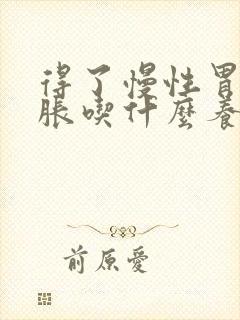 得了慢性胃
脹喫什麼養
前原愛